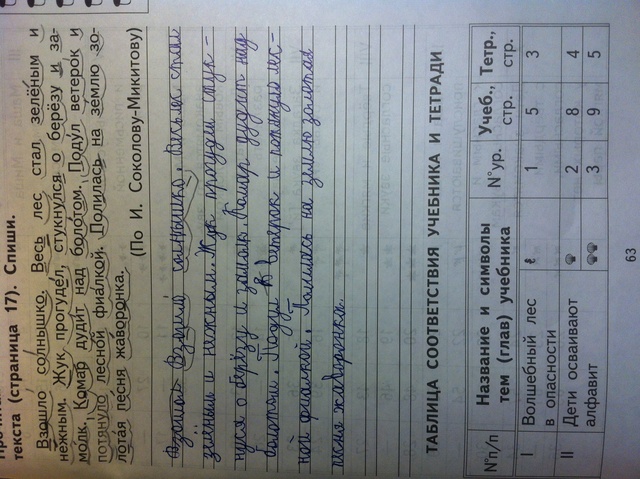 текста (страница 17). Спиши.
Взошло солнышко. Весь лес стал зелёным и
нежным. Жук прогудел, стукнулся о берёзу и за-
молк. Комар дудит над болотом. Подул ветерок и
потянуло лесной фиалкой. Полилась на землю зо-
лотая песня жаворонка.
(По И. Соколову-Микитову)
Взошло солнышко. Весь лес стал
зелёным и нежным. Жук прогудел стук-
нулся о берёзу и замолк. Комар дудит над
болотом. Подул ветерок и потянуло лес-
ной фиалкой. Полилась на землю золотая
песня жаворонка.
ТАБЛИЦА СООТВЕТСТВИЯ УЧЕБНИКА И ТЕТРАДИ
№п/п Название и символы тем (глав) учебника №ур. Учеб., стр. Тетр., стр.
I Волшебный лес 1 5 3
в опасности
II Дети осваивают 2 8 4
алфавит 3 9 5
63